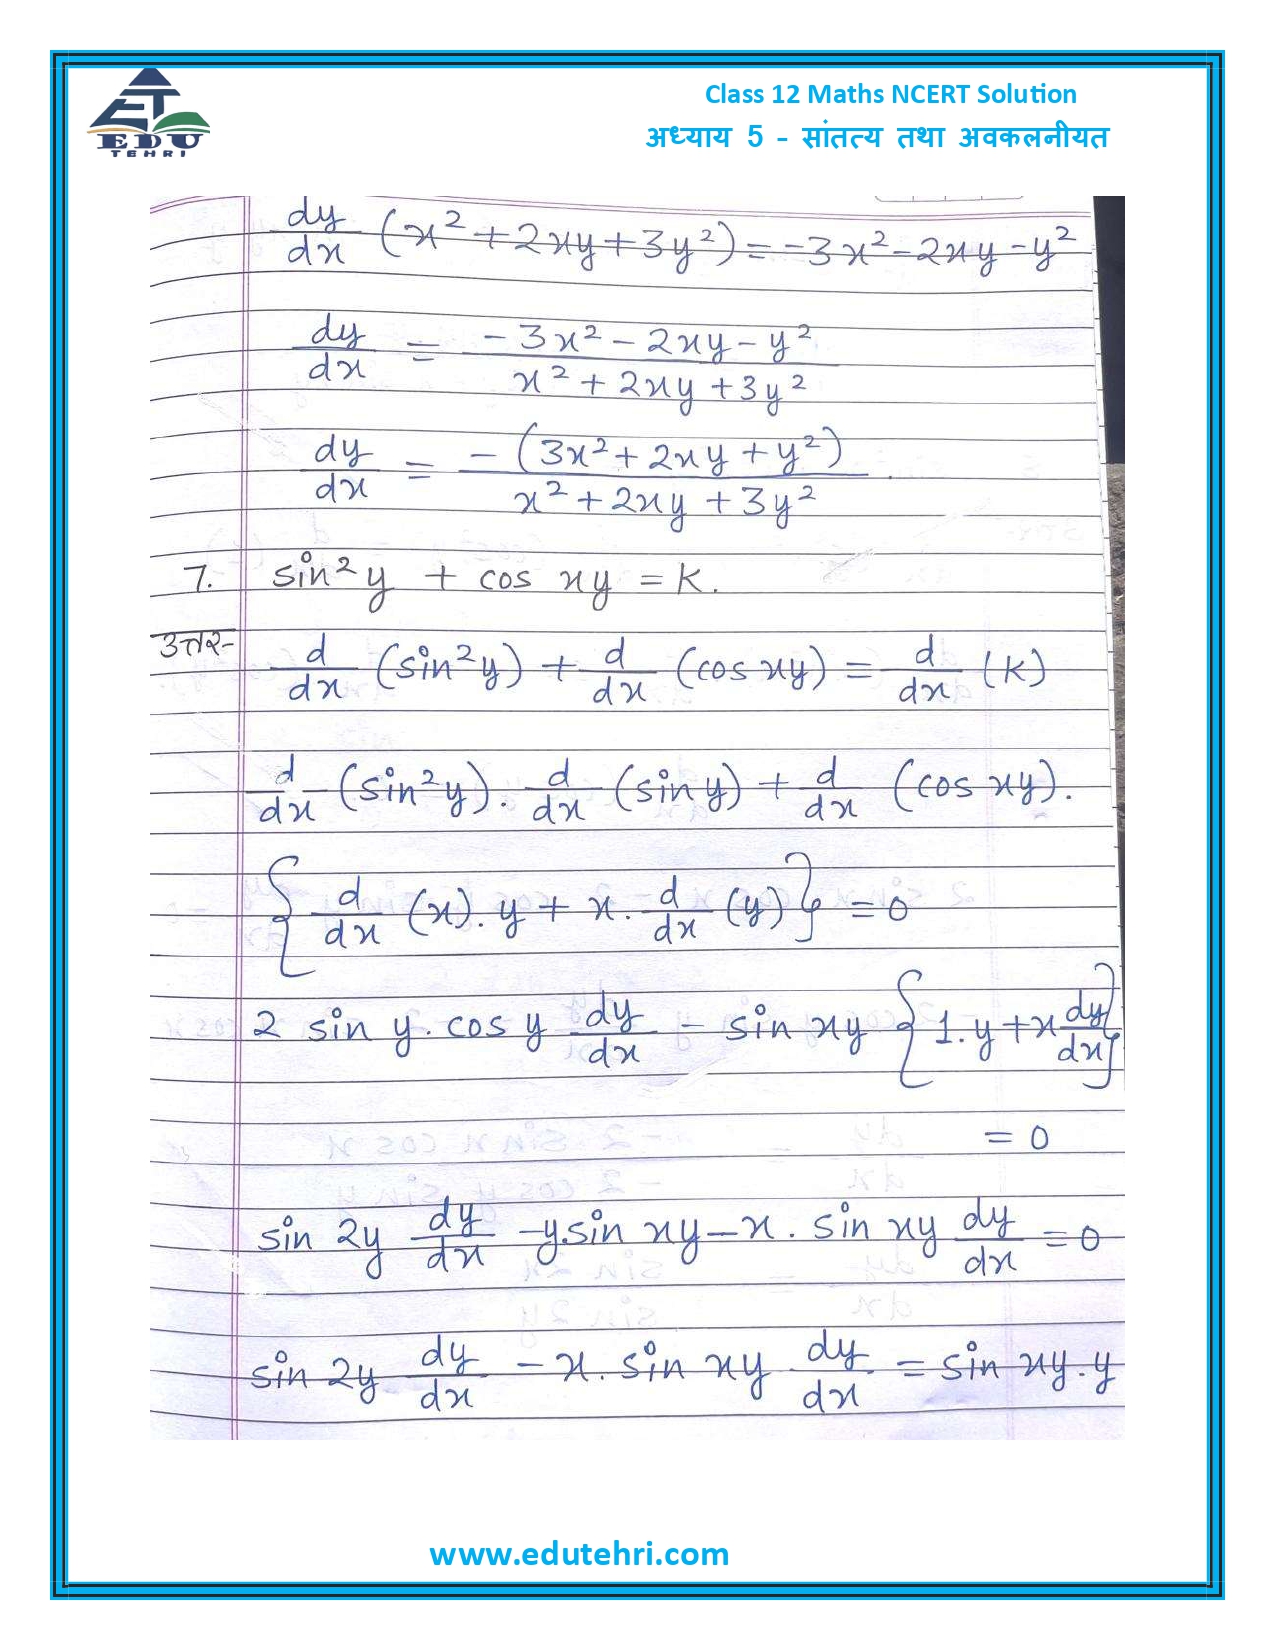 EDU
TEHRI
Class 12 Maths NCERT Solution
अध्याय 5 - सांतत्य तथा अवकलनीयत
dy/dx (x² + 2xy + 3y²) = -3x² - 2xy - y²
dy/dx = (-3x² - 2xy - y²)/(x² + 2xy + 3y²)
dy/dx = -(3x² + 2xy + y²)/(x² + 2xy + 3y²).
7. sin²y + cos xy = K.
उत्तर- d/dx (sin²y) + d/dx (cos xy) = d/dx (K)
d/dx (sin²y). d/dx (sin y) + d/dx (cos xy).
{d/dx (x). y + x. d/dx (y)} = 0
2 sin y. cos y dy/dx - sin xy {1. y + x dy/dx}
= 0
sin 2y dy/dx - y. sin xy - x. sin xy dy/dx = 0
sin 2y dy/dx - x. sin xy dy/dx = sin xy. y
www.edutehri.com